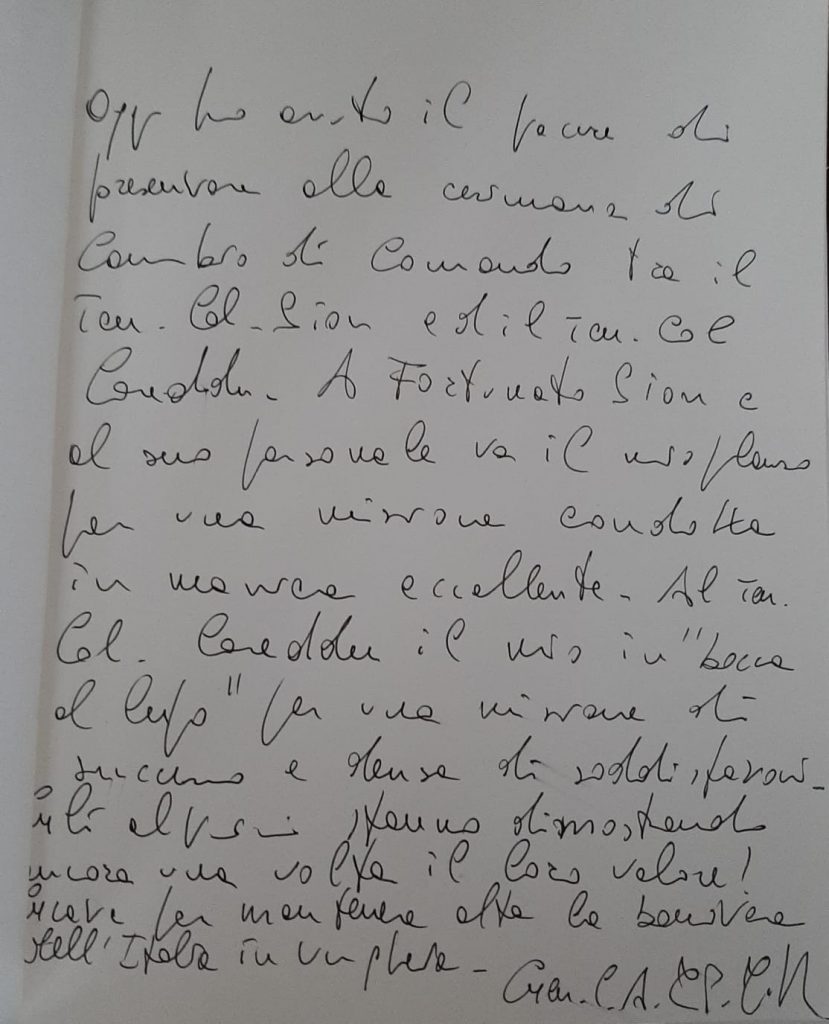 Oggi ho avuto il piacere di
presenziare alla cerimonia di
Cambio di Comando tra il
Ten. Col. Sion ed il Ten. Col
Careddu. A Fortunato Sion e
al suo personale va il mio plauso
per una missione condotta
in maniera eccellente. Al Ten.
Col. Careddu il mio in "bocca
al lupo" per una missione di
successo e densa di soddisfazioni.
Gli alpini stanno dimostrando
ancora una volta il loro valore!
Grazie per mantenere alta la bandiera
dell'Italia in Ungheria.
Gen. C.A.